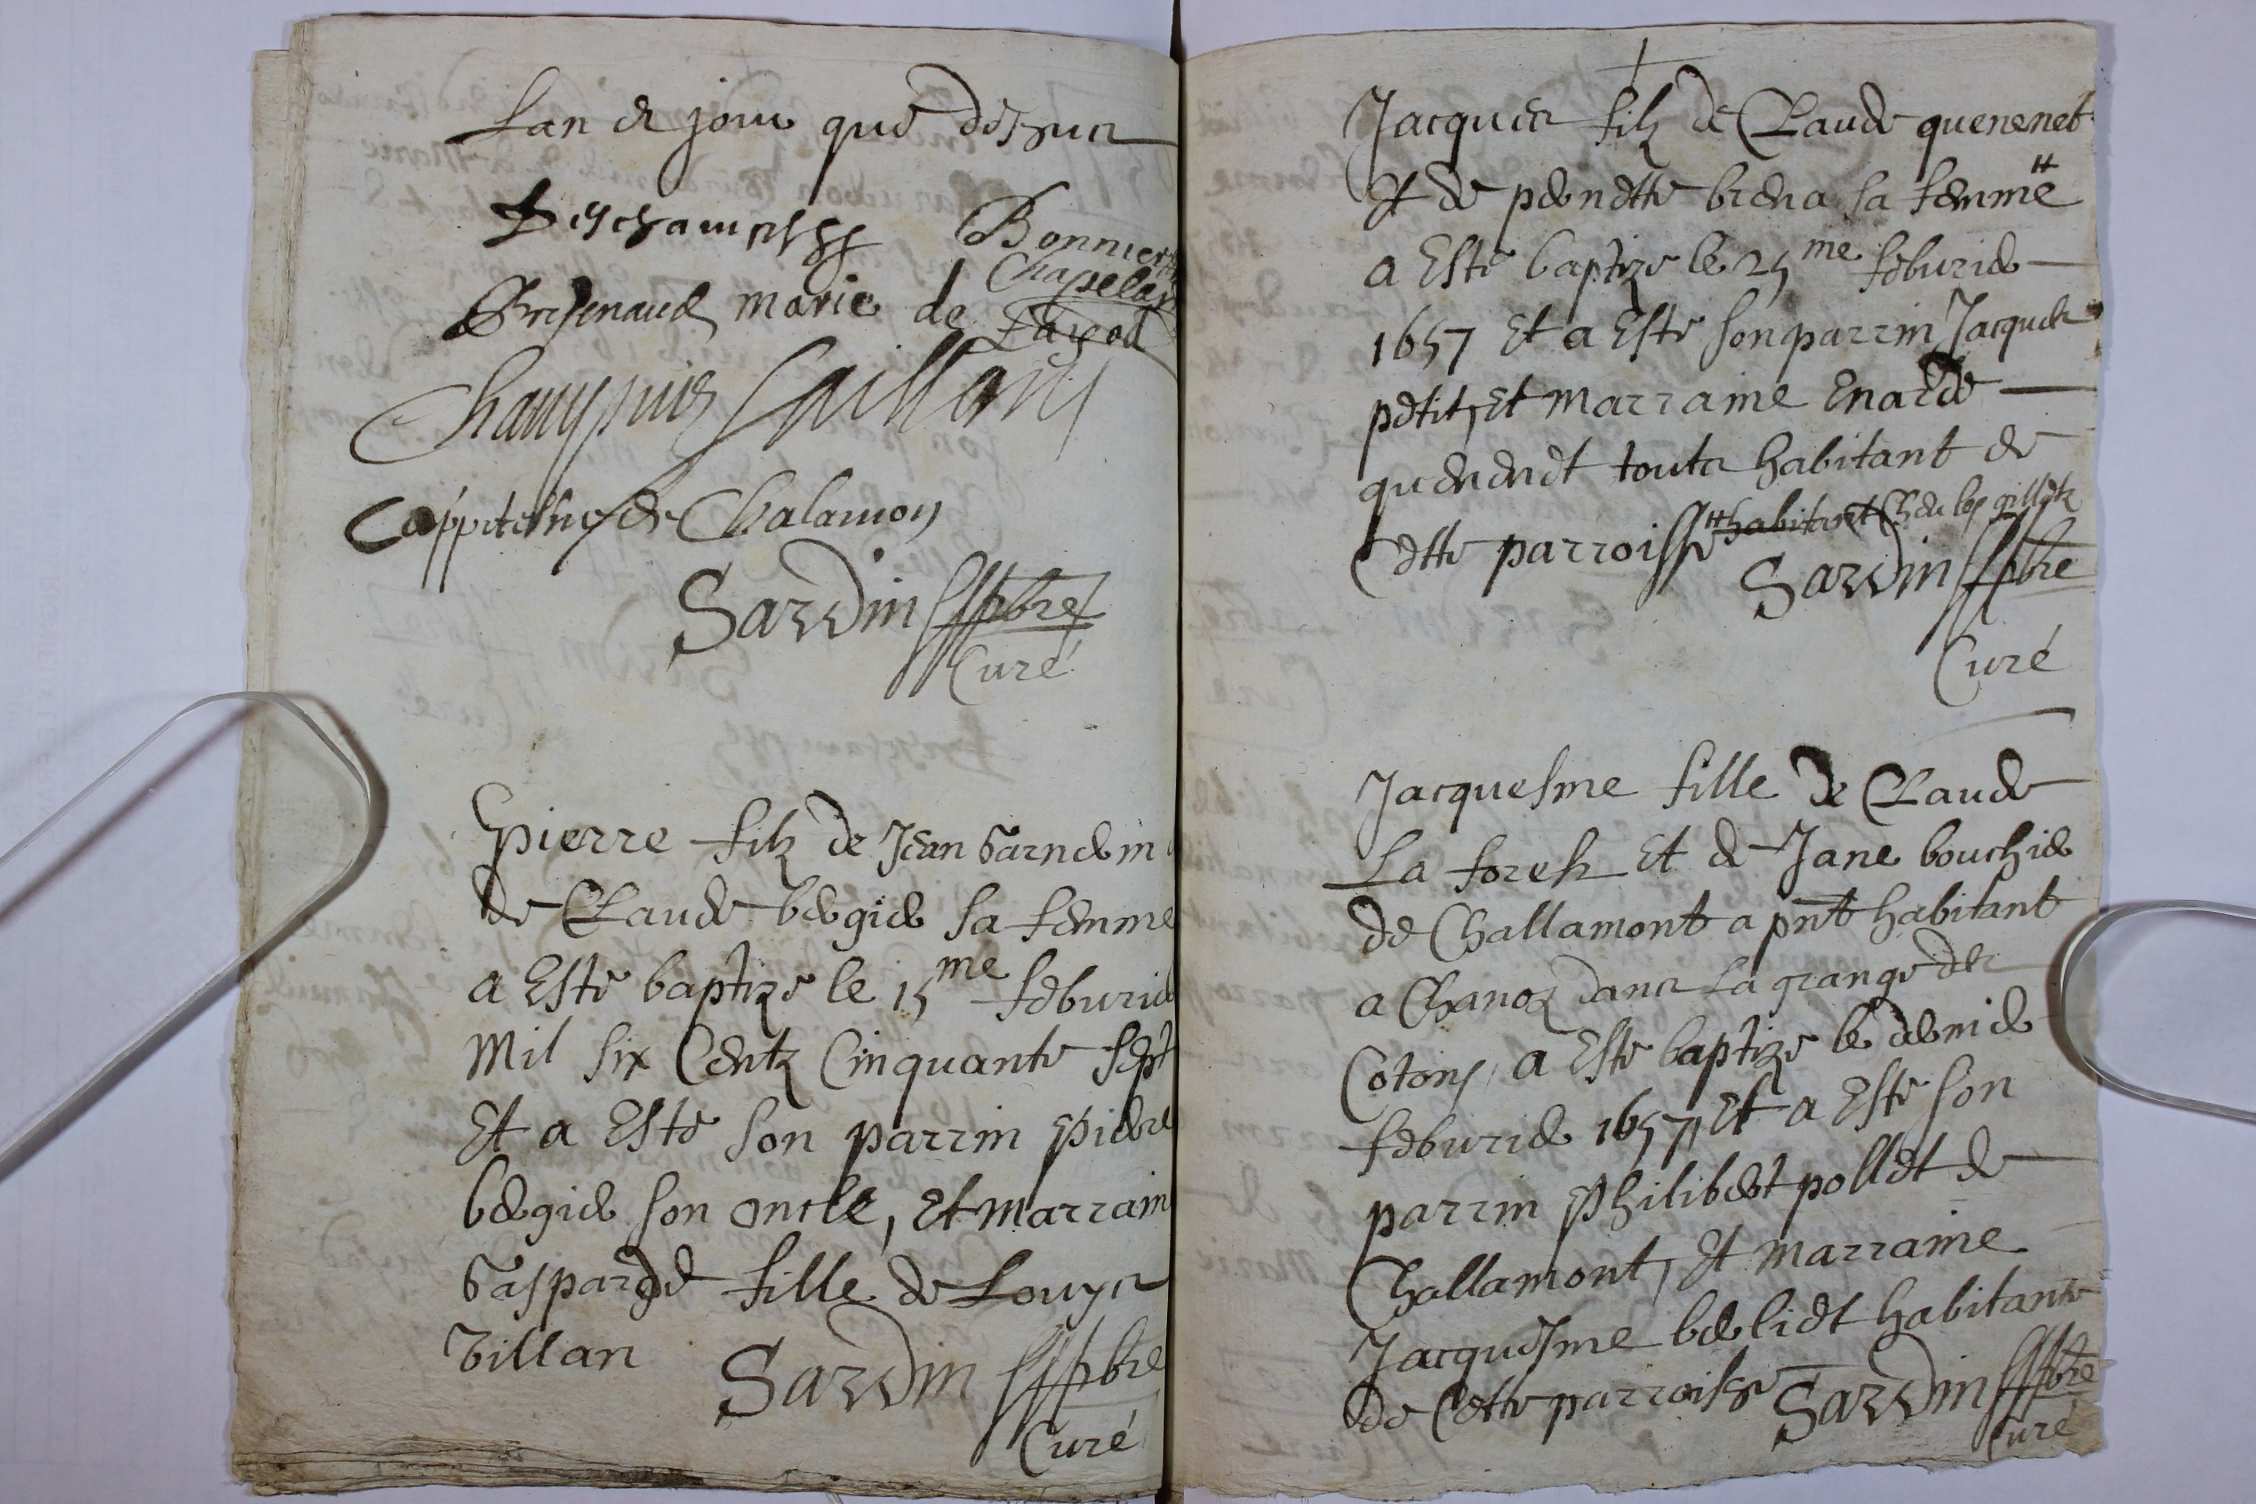 Lan et jour que dessus
Deschamps Bonnier
Chapelain
marie de Fayed
Champuis Caillard
Cappitaine de Chalamon
Sardin pbre
Curé
Pierre filz de Jean Garnier
de Claude bergier sa femme
a Esté baptize le 15me feburier
Mil six Centz Cinquante sept
Et a Esté son parrin Pierre
bergier son oncle, Et Marraine
Gasparde fille de Louys
Villan
Sardin pbre
Curé
Jacques filz de Claude quenenet
Et de pernette sa femme
a Esté baptize le 25me feburier
1657 Et a Esté son parrin Jacques
petit, Et Marraine Enarde
touts habitant de
Cette parroisse habitant Ches les gilletz
Sardin pbre
Curé
Jacquesme fille de Claude
La forest Et de Jane bouchier
de Challamont a pnt habitant
a Chanoz dans La grange des
Cotons, a Esté baptize le dernier
feburier 1657, Et a Esté son
parrin Philibert pollet de
Challamont, Et Marraine
Jacquesme berliet habitante
de Cette parroisse Sardin pbre
Curé